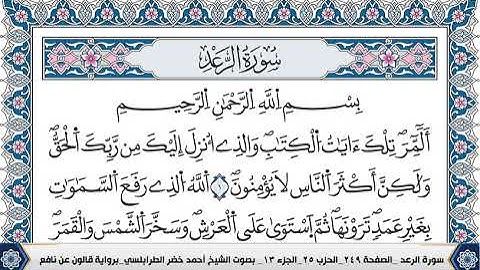 سُورَةُ الرَّعْدِ
بِسْمِ اِ۬للَّهِ اِ۬لرَّحْمَٰنِ اِ۬لرَّحِيمِ
أَلَٓمِّٓر۪ۖ تِلْكَ ءَايَٰتُ اُ۬لْكِتَٰبِۖ وَالذِےٓ أُنزِلَ إِلَيْكَ مِن رَّبِّكَ اَ۬لْحَقُّۖ
وَلَٰكِنَّ أَكْثَرَ اَ۬لنَّاسِ لَا يُؤْمِنُونَۖ ١ اُ۬للَّهُ اُ۬لذِے رَفَعَ اَ۬لسَّمَٰوَٰتِ
بِغَيْرِ عَمَدٖ تَرَوْنَهَاۖ ثُمَّ اَ۪سْتَوَىٰ عَلَى اَ۬لْعَرْشِۖ وَسَخَّرَ اَ۬لشَّمْسَ وَالْقَمَرَۖ
سورة الرعد _الصفحة ٢٤٩_ الحزب ٢٥_ الجزء ١٣ _ بصوت الشيخ أحمد خضر الطرابلسي_ برواية قالون عن نافع